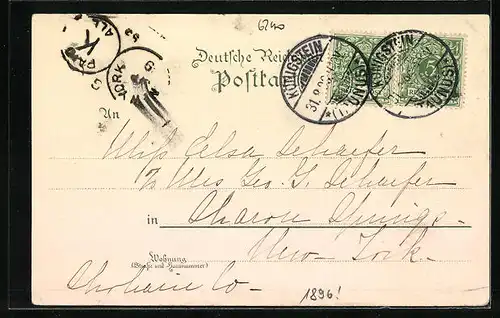 6200
Deutsche Reic
Postka
KÖNIGSTEIN
(TAUNUS)
31.8.96
KÖNIGSTEIN
(TAUNUS)
5
YORK
PAID
K
An
Miss Elsa Schaefer
c/o Mrs Geo. G. Schaefer
in Sharon Springs-
New-York.
Wohnung
(Straße und Hausnummer)
Schoharie Co-
1896!